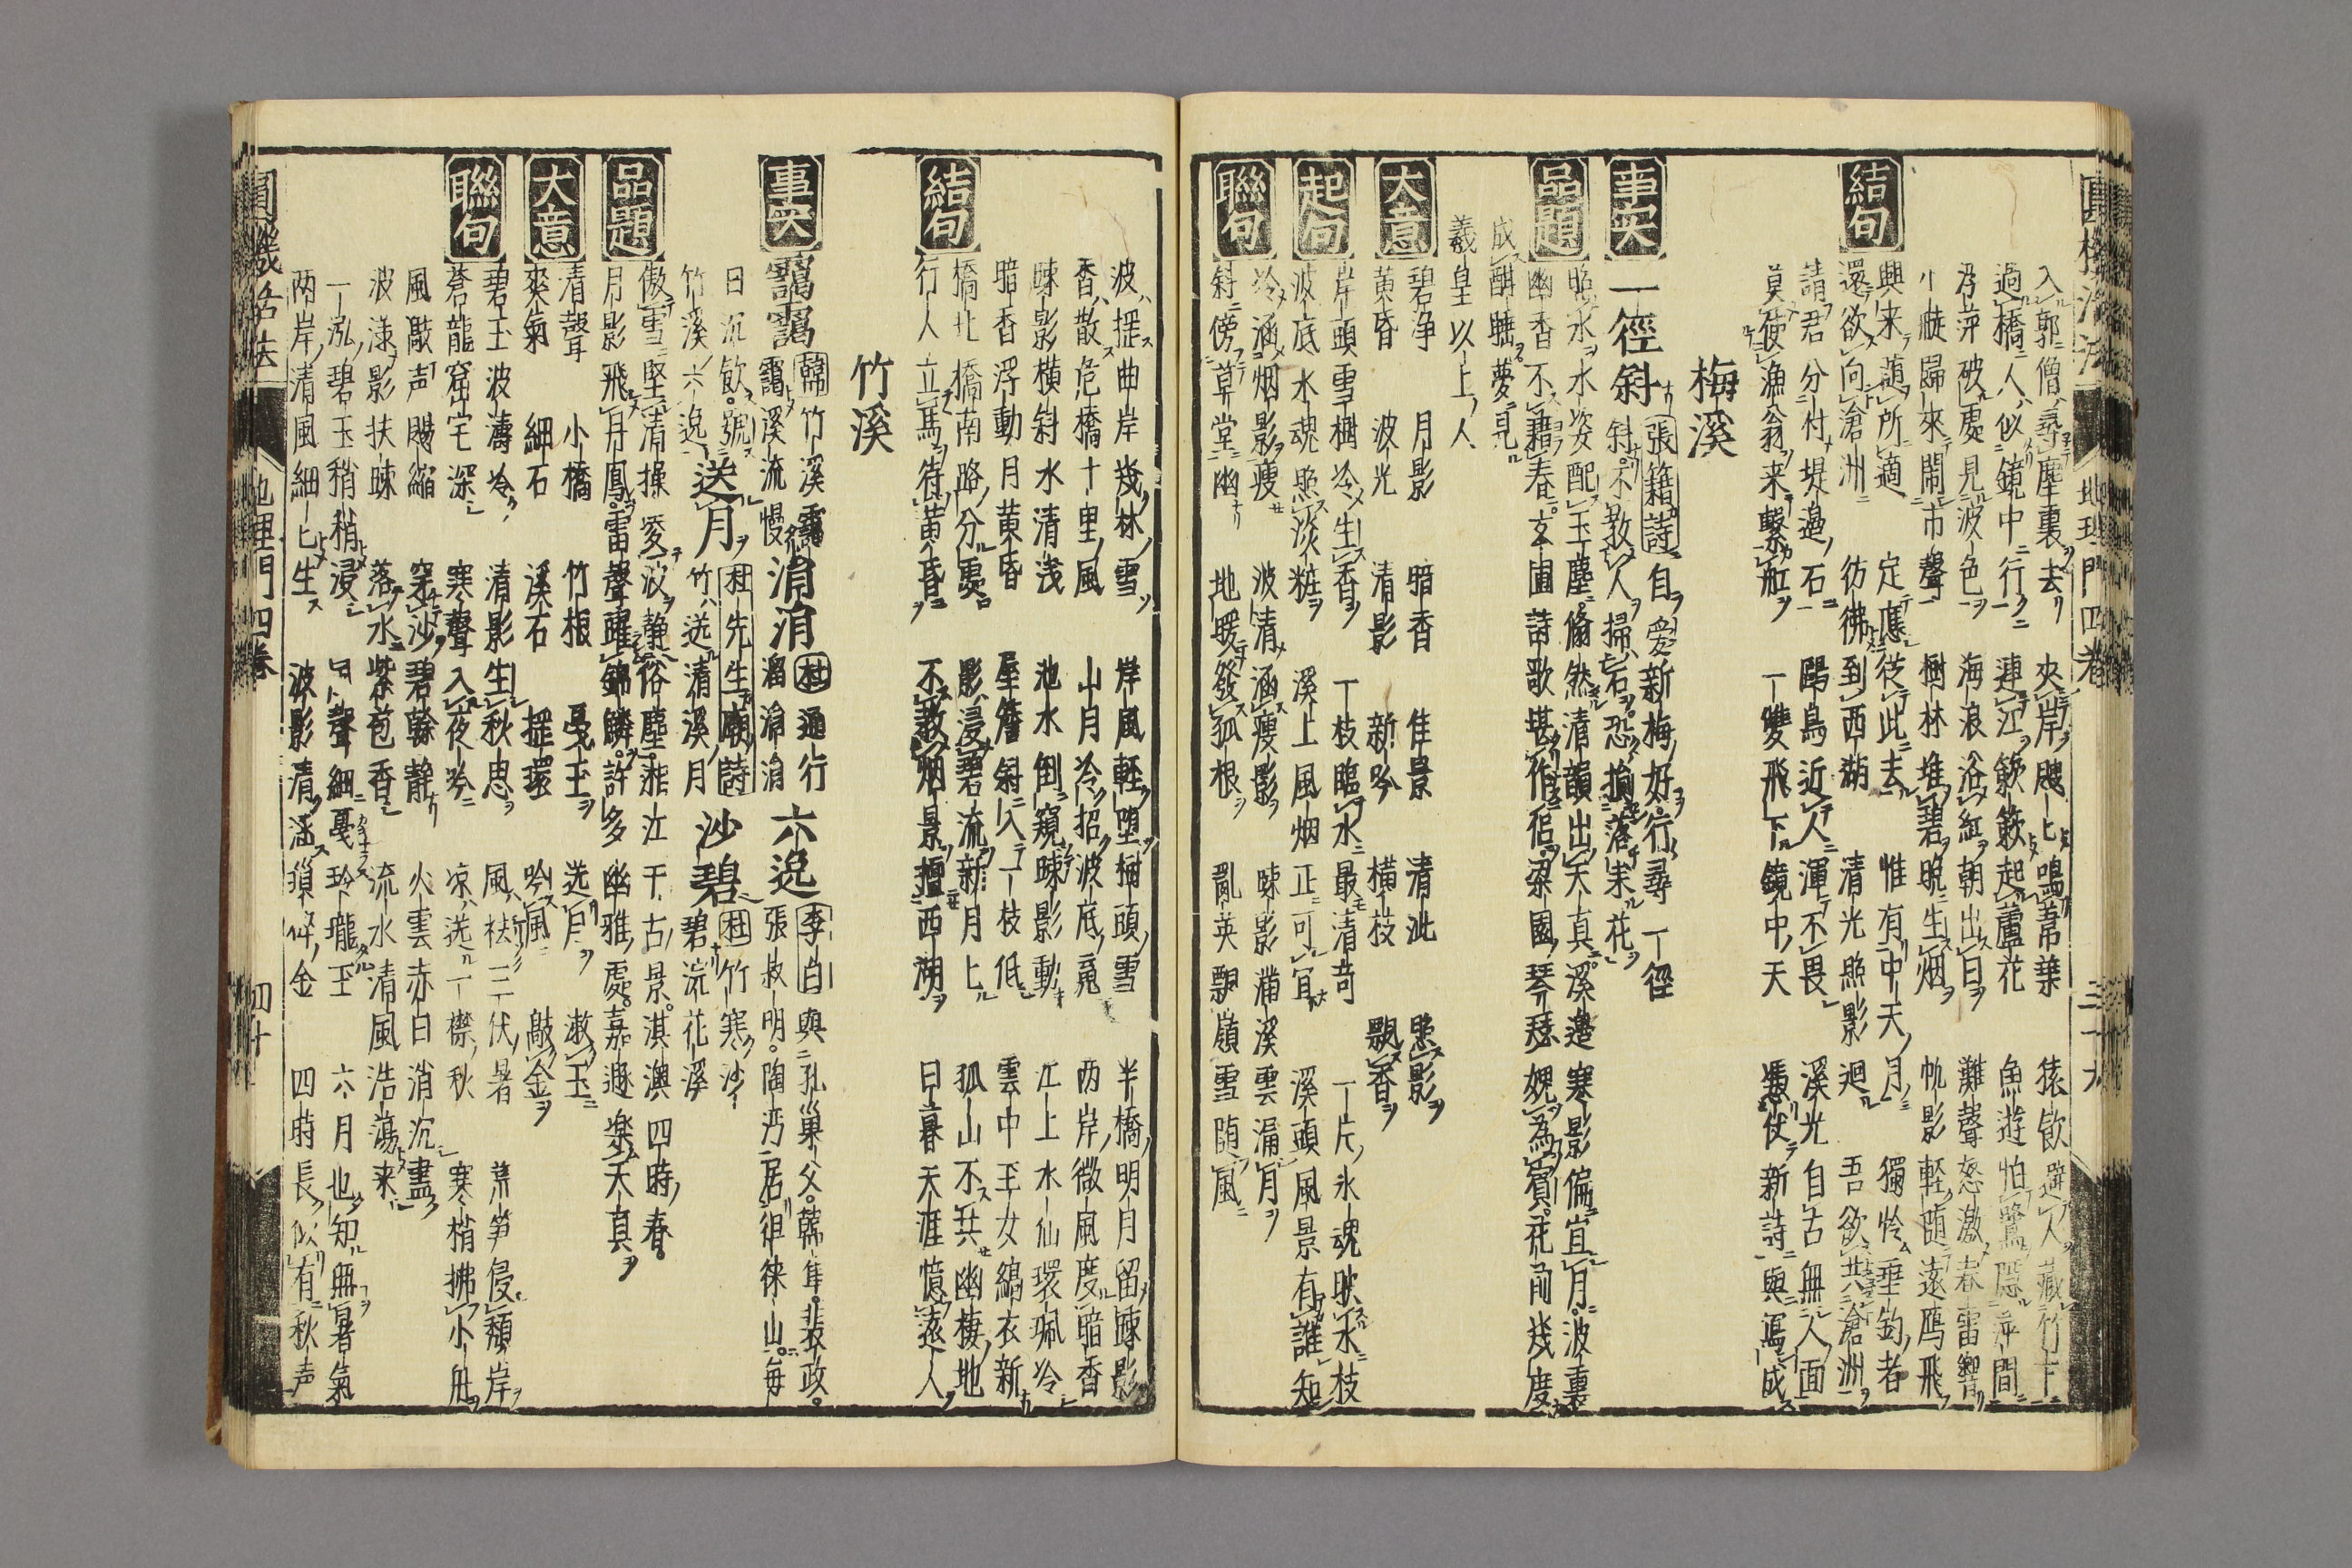 入郭僧尋塵裏去 夾岸颼颼鳴葦葉 猿飲避人藏竹
過橋人似鏡中行 連江簌簌起蘆花 魚遊怕鷺隱萍間
乃萍破處見波色 海浪浴紅朝出日 灘聲怒激春雷響
小艇歸來鬧市聲 樹林堆碧晚生烟 帆影軽随遠鴈飛
結句
興来随所適 定應従此去 惟有中天月 獨怜垂釣者
還欲向滄洲 彷彿到西湖 清光照影廻 吾欲共滄洲
請君分付堤邉石 歸鳥近人渾不畏 溪光自古無人画
莫使漁翁来繋舡 一雙飛下鏡中天 憑仗新詩與寫成
梅溪
事实
一徑斜 張籍詩 自愛新梅好行尋一徑
斜不教人掃石恐損落来花
品題
照水水姿配玉塵脩然清韻出天真溪邉寒影偏宜月波裏
幽香不藉春玄圃詩歌堪作侶梁園琴瑟媿為賓花前幾度
成酣睡夢見
羲皇以上人
大意
碧浄 月影 暗香 佳景 清泚 照影
黄昏 波光 清影 新吟 横枝 飄香
起句
岸頭雪樹冷生香 一枝臨水最清奇 一片氷魂映水枝
波底水魂照淡粧 溪上風烟正可宜 溪頭風景有誰知
聯句
冷涵烟影瘦 波清涵瘦影 疎影滿溪雲漏月
斜傍草堂幽 地暖發孤根 亂英飄嶺雪随風
波揺曲岸幾林雪 岸風軽堕樹頭雪 半橋明月留疎影
香散危橋十里風 山月冷招波底㒵 两岸微風度暗香
疎影横斜水清浅 池水倒窺疎影動 江上水仙環珮冷
暗香浮動月黄昏 屋簷斜入一枝低 雲中玉女縞衣新
結句
橋北橋南路分處 影浸碧流新月上 孤山不共幽棲地
行人立馬待黄昏 不教烟景擅西湖 日暮天涯憶遠人
竹溪
事实
靄靄 韓 竹溪靄
靄溪流慢 涓涓 杜 通行
溜涓涓 六逸 李白 與孔巣父韓準裴政
張叔明陶沔居徂徠山毎
日沉飲號
竹溪六逸 送月 杜先生廟詩
竹送清溪月 沙碧 杜 竹寒沙
碧浣花溪
品題
傲雪堅清操愛波静俗塵湘江千古景淇澳四時春
月影飛丹鳳雷聲躍錦鱗許多幽雅處嘉遯楽天真
大意
清聲 小橋 竹根 戛玉 送月 漱玉
爽氣 細石 溪石 揺環 吟風 敲金
聯句
碧玉波濤冷 清影生秋思 風祛三伏暑 茶笋侵頽岸
蒼龍窟宅深 寒聲入夜吟 凉送一襟秋 寒梢拂小舟
風敲声賜縮 穿沙碧幹静 火雲赤日消沉盡
波漾影扶疎 落水紫苞香 流水清風浩蕩来
一泓碧玉稍稍浸 聲細戛玲瓏玉 六月也知無暑氣
两岸清風細細生 波影清涵瑣碎金 四時長似有秋声
圓機活法 地理門四巻 三十九
圓機活法 地理門四巻 四十